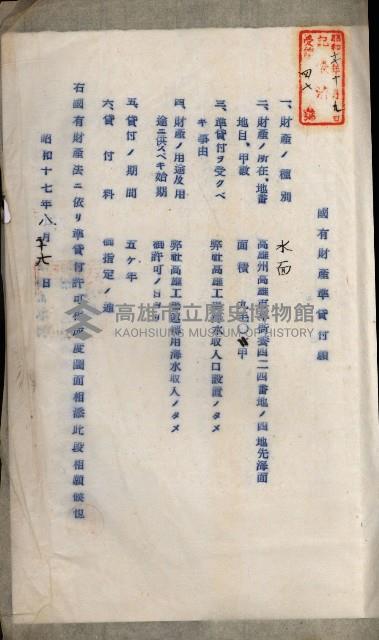 國有財產準貸付願
一、財產ノ種別 水面
二、財產ノ所在、地番
地目、甲數
高雄州高雄市
四二四番地ノ四地先海面
面積
甲
三、準貸付ヲ受クベ
キ事由
弊社高雄工場
水取入口設置ノタメ
四、財產ノ用途及用
途ニ供スベキ始期
弊社高雄工場
用海水取入ノタメ
御許可ノ日ヨリ
五、貸付ノ期間 五ケ年
六、貸付料 御指定ノ通
右國有財產法ニ依リ準貸付許可
度圖面相添此段相願候也
昭和十七年八月
日
高雄市立歷史博物館
KAOHSIUNG MUSEUM OF HISTORY